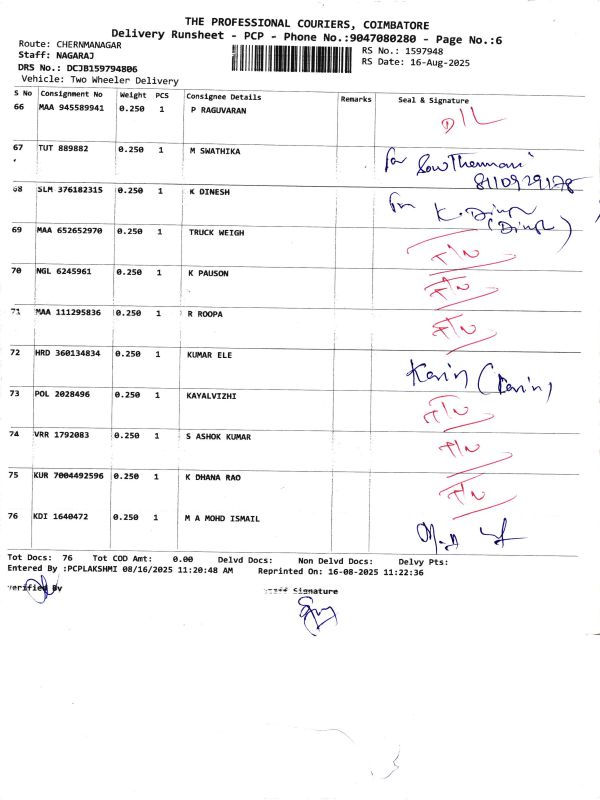 THE PROFESSIONAL COURIERS, COIMBATORE
Delivery Runsheet - PCP - Phone No.:9047080280 - Page No.:6
Route: CHERNMANAGAR
Staff: NAGARAJ
DRS No.: DCJB159794806
Vehicle: Two Wheeler Delivery
RS No.: 1597948
RS Date: 16-Aug-2025
S No Consignment No Weight PCS Consignee Details Remarks Seal & Signature
66 MAA 945589941 0.250 1 P RAGUVARAN D/L
67 TUT 889882 0.250 1 M SWATHIKA for
8110929178
68 SLM 376182315 0.250 1 K DINESH for K.
69 MAA 652652970 0.250 1 TRUCK WEIGH
70 NGL 6245961 0.250 1 K PAUSON
71 MAA 111295836 0.250 1 R ROOPA
72 HRD 360134834 0.250 1 KUMAR ELE
73 POL 2028496 0.250 1 KAYALVIZHI
74 VRR 1792083 0.250 1 S ASHOK KUMAR
75 KUR 7004492596 0.250 1 K DHANA RAO
76 KDI 1640472 0.250 1 M A MOHD ISMAIL
Tot Docs: 76 Tot COD Amt: 0.00 Delvd Docs: Non Delvd Docs: Delvy Pts:
Entered By :PCPLAKSHMI 08/16/2025 11:20:48 AM Reprinted On: 16-08-2025 11:22:36
Verified By Staff Signature